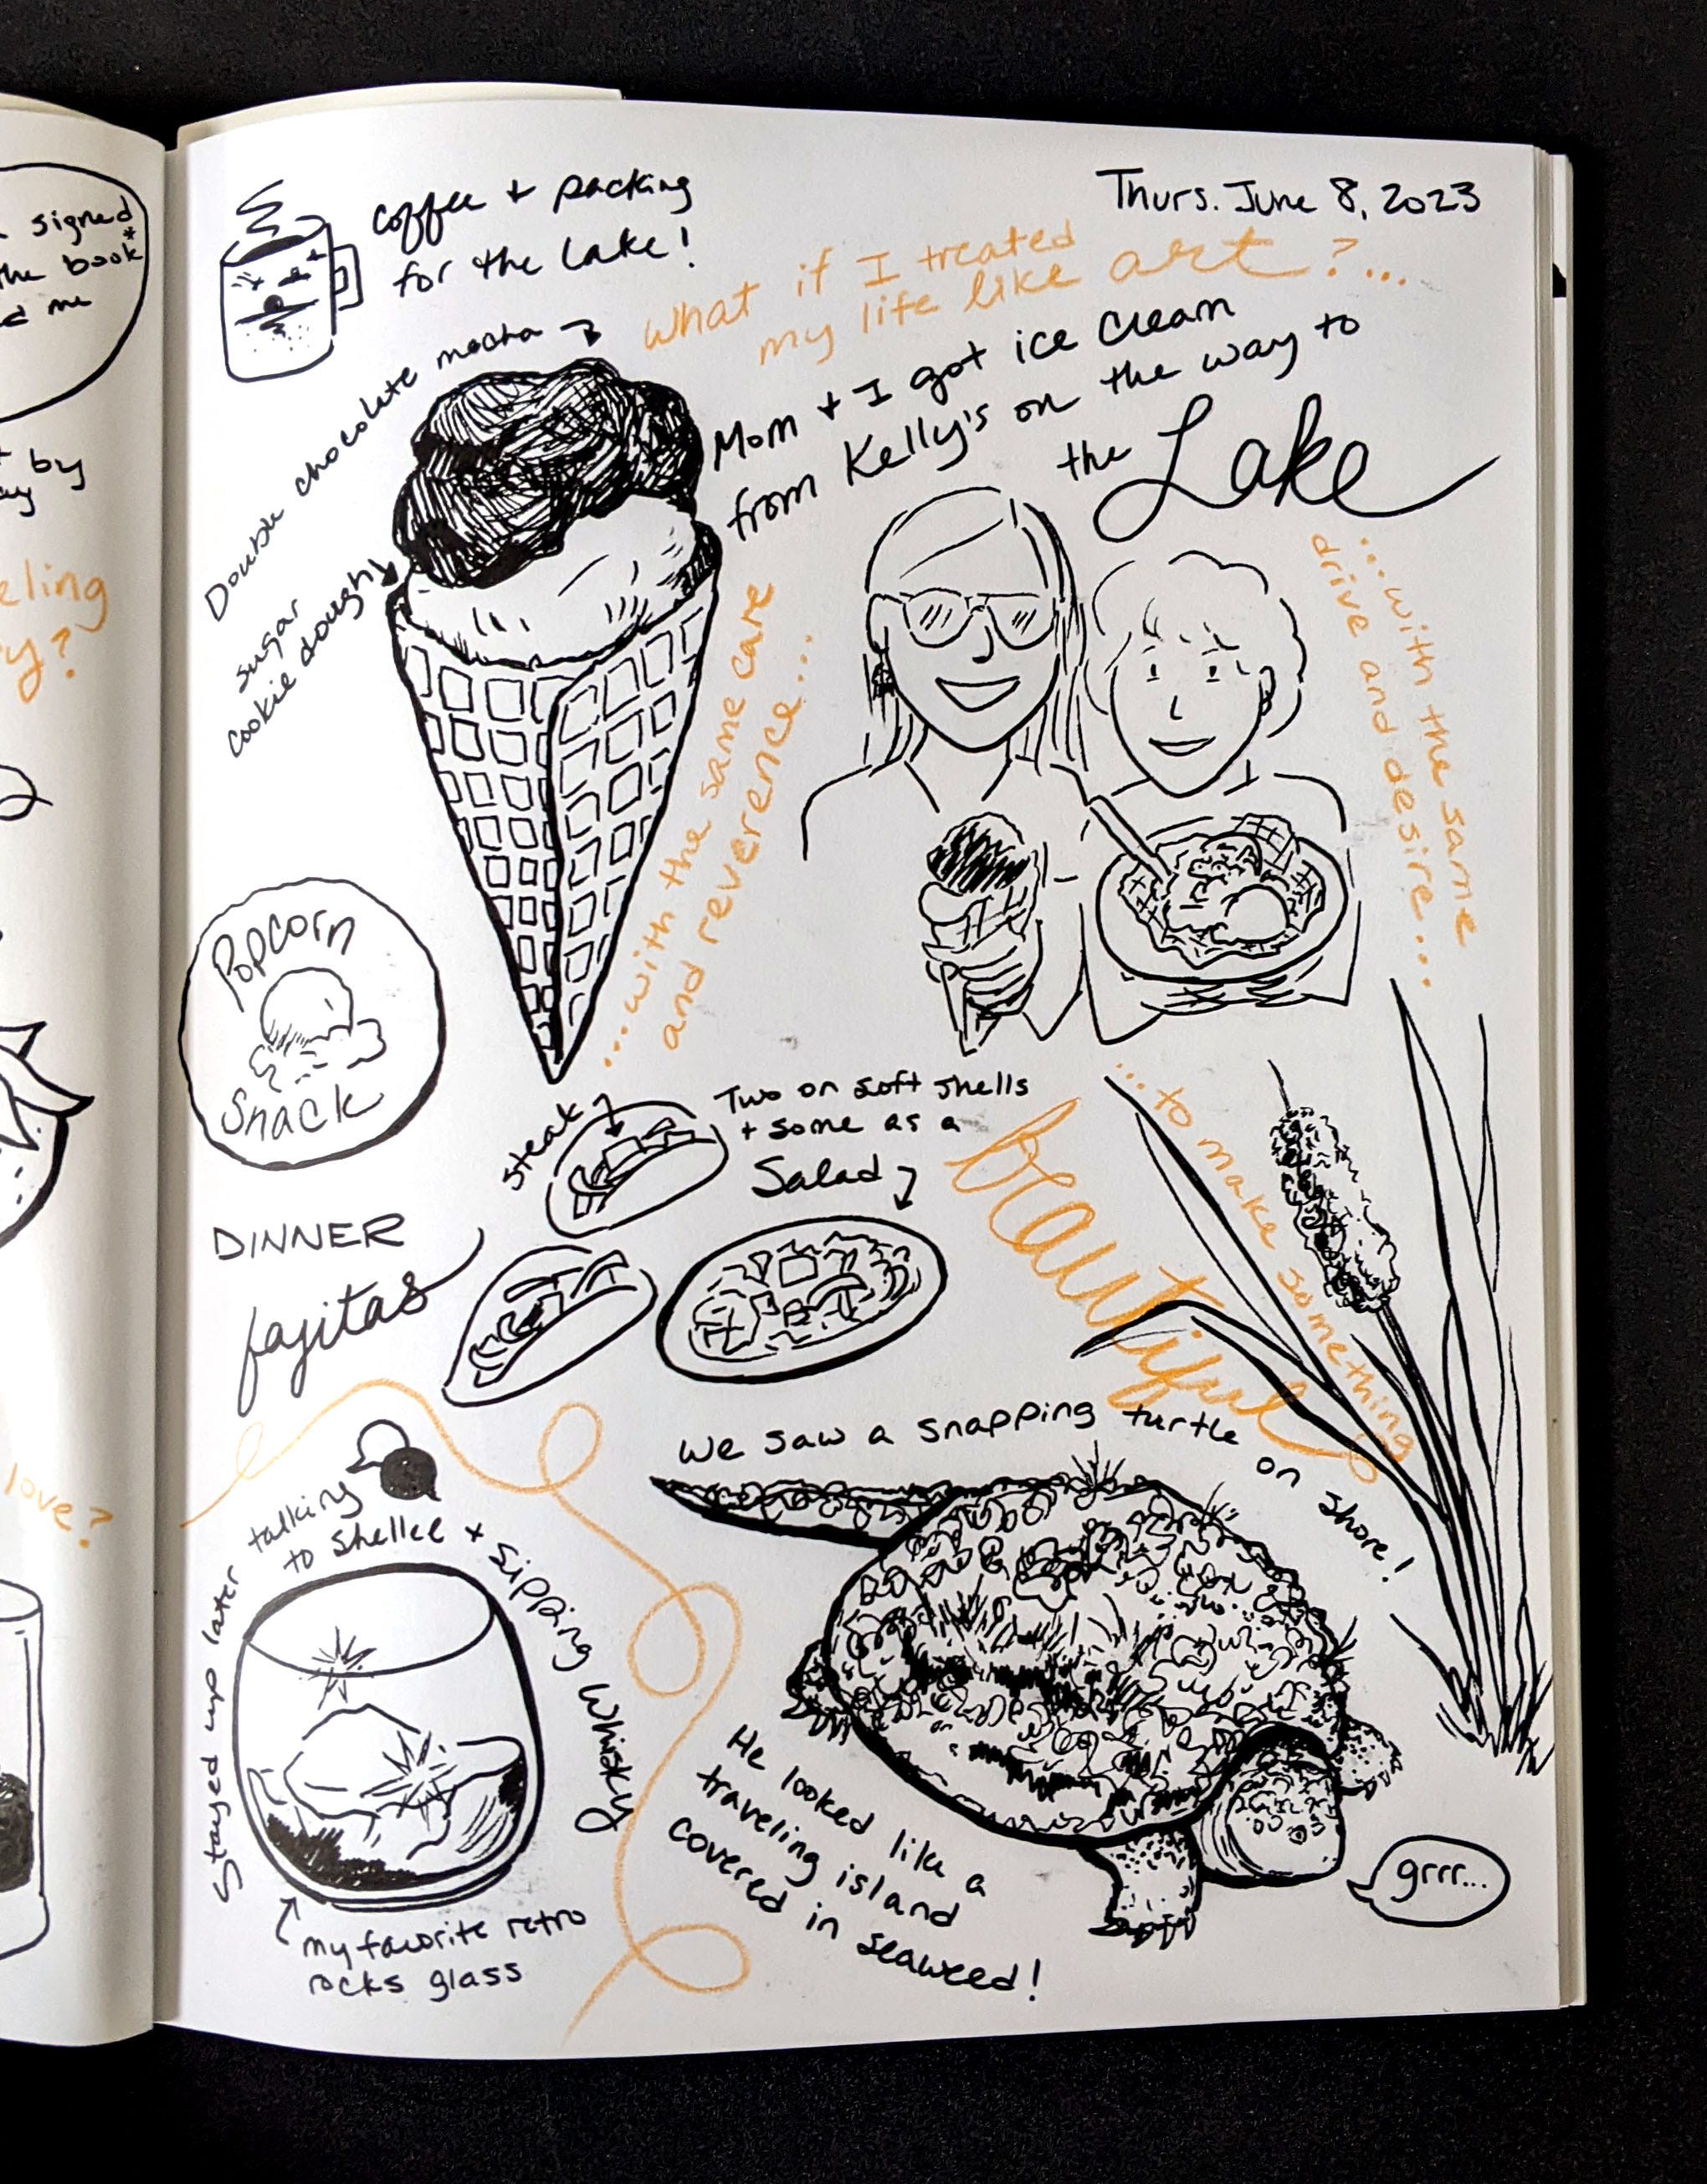 signed
the book*
me
by
love?
Thurs. June 8, 2023
coffee + packing
for the Lake!
What if I treated
my life like art?...
Double chocolate mocha
sugar
cookie dough
Mom + I got ice cream
from Kelly's on the way to
the Lake
...with the same care
and reverence...
...with the same
drive and desire...
Popcorn
Snack
...to make something
beautiful
DINNER
fajitas
steak
Two on soft shells
+ some as a
Salad
We saw a snapping turtle on shore!
Stayed up later talking
to Shellee + sipping whisky
my favorite retro
rocks glass
He looked like a
traveling island
covered in seaweed!
grrr...